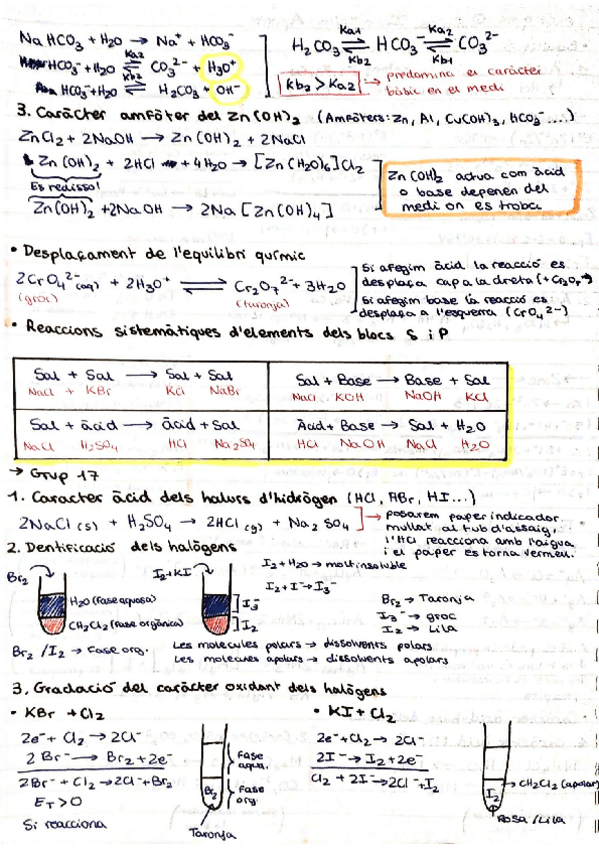 NaHCO3 + H2O → Na+ + HCO3-
HCO3- + H2O ⇌ CO3 2- + H3O+
Ka2
Kb2
HCO3- + H2O ⇌ H2CO3 + OH-
H2CO3 ⇌ HCO3- ⇌ CO3 2-
Ka1 Ka2
Kb2 Kb1
Kb2 > Ka2 → predomina el caràcter
bàsic en el medi
3. Caràcter amfòter del Zn(OH)2 (Amfòters: Zn, Al, Cu(OH)3, HCO3- ...)
ZnCl2 + 2NaOH → Zn(OH)2 + 2NaCl
Zn(OH)2 + 2HCl + 4H2O → [Zn(H2O)6]Cl2
Es redissol
Zn(OH)2 + 2NaOH → 2Na[Zn(OH)4]
Zn(OH)2 actua com àcid
o base depenen del
medi on es troba
• Desplaçament de l'equilibri químic
2CrO4 2- (aq) + 2H3O+ ⇌ Cr2O7 2- + 3H2O
(groc) (taronja)
Si afegim àcid la reacció es
desplaça cap a la dreta (+Cr2O7 2-)
Si afegim base la reacció es
desplaça a l'esquerra (CrO4 2-)
• Reaccions sistemàtiques d'elements dels blocs S i P
Sal + Sal → Sal + Sal
NaCl + KBr KCl NaBr
Sal + Base → Base + Sal
NaCl KOH NaOH KCl
Sal + àcid → àcid + Sal
NaCl H2SO4 HCl Na2SO4
Acid + Base → Sal + H2O
HCl NaOH NaCl H2O
→ Grup 17
1. Caracter àcid dels halurs d'hidrògen (HCl, HBr, HI...)
2NaCl(s) + H2SO4 → 2HCl(g) + Na2SO4
→ posarem paper indicador
mullat al tub d'assaig,
l'HCl reacciona amb l'aigua
i el paper es torna vermell.
2. Dentificació dels halògens
Br2
H2O (fase aquosa)
CH2Cl2 (fase orgànica)
Br2 / I2 → Fase org.
I2 + KI
I3-
I2
I2 + H2O → molt insoluble
I2 + I- → I3-
Br2 → Taronja
I3- → groc
I2 → Lila
Les molècules polars → dissolvents polars
Les molècules apolars → dissolvents apolars
3. Gradació del caràcter oxidant dels halògens
• KBr + Cl2
2e- + Cl2 → 2Cl-
2Br- → Br2 + 2e-
2Br- + Cl2 → 2Cl- + Br2
ET > 0
Si reacciona
Fase
aqu.
Fase
org.
Br2
Taronja
• KI + Cl2
2e- + Cl2 → 2Cl-
2I- → I2 + 2e-
Cl2 + 2I- → 2Cl- + I2
CH2Cl2 (apolar)
I2
Rosa / Lila